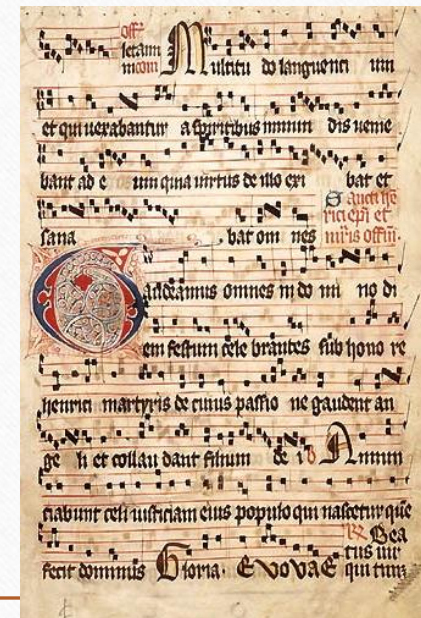 off̄
letam
mcom Multitu do languenti um
et qui uexabantur a spiritibus inmun dis uenie
bant ad e um quia uirtus de illo exi bat et
Sancti he
sana bat om nes rici epi et
m̄ris offm̄.
Gaudeamus omnes in do mi no di
em festum cele brantes sub hono re
henrici martyris de cuius passio ne gaudent an
ge li et collau dant filium de i Annun
ciabunt celi iusticiam eius populo qui nascetur quē
Bea
tus uir
fecit dominus Gloria. EVOVAE qui tim